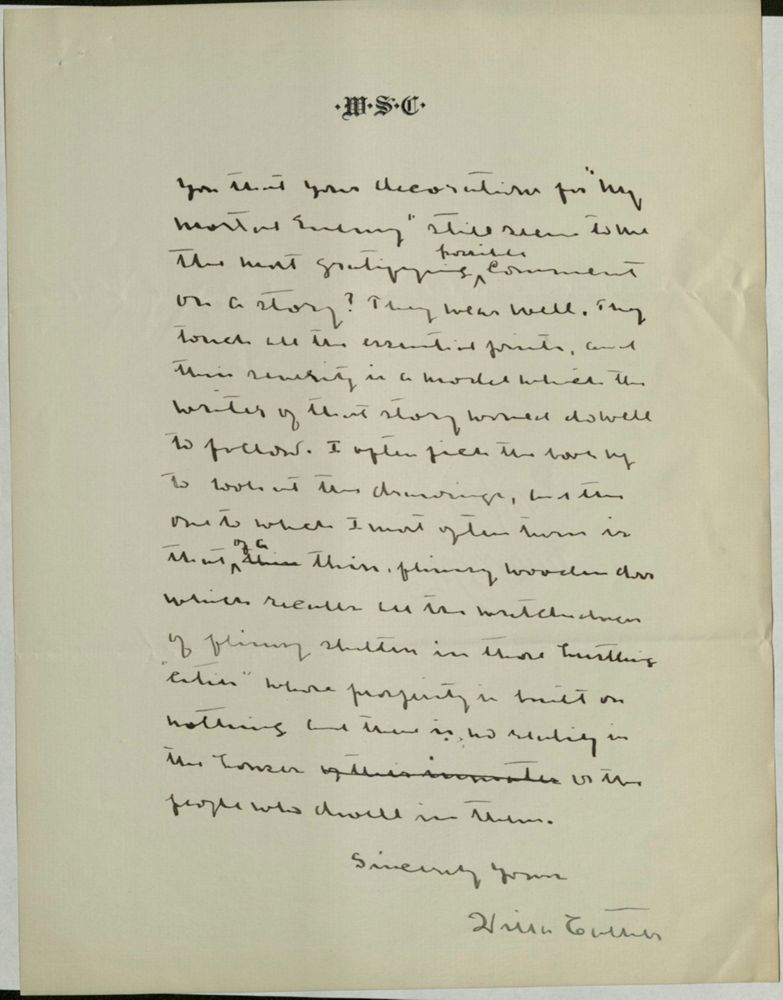 ·W·S·C·
you that your decorations for "My
Mortal Enemy" still seem to me
possible
the most gratifying comment
on a story? They wear well. They
touch all the essential points, and
their severity is a model which the
writer of that story would do well
to follow. I often pick the book up
to look at the drawings, but the
one to which I most often turn is
of a
that thin, flimsy wooden door
which recalls all the wretchedness
of flimsy shelters in those hustling
"cities" whose prosperity is built on
nothing and there is no reality in
the houses of their inmates or the
people who dwell in them.
Sincerely yours
Willa Cather